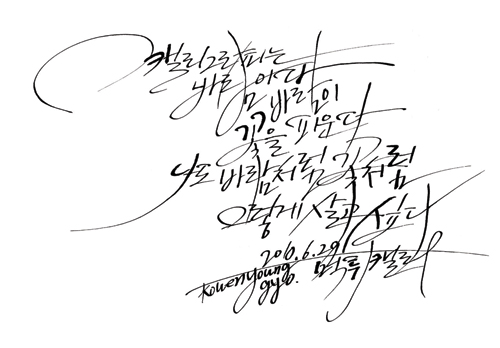 캘리그라피는
바람이다
그 바람이
꽃을 피운다
나도 바람처럼 꽃처럼
이렇게 살고 싶다
2010.6.29
먹투캘리
Kowenyoung
gyo.